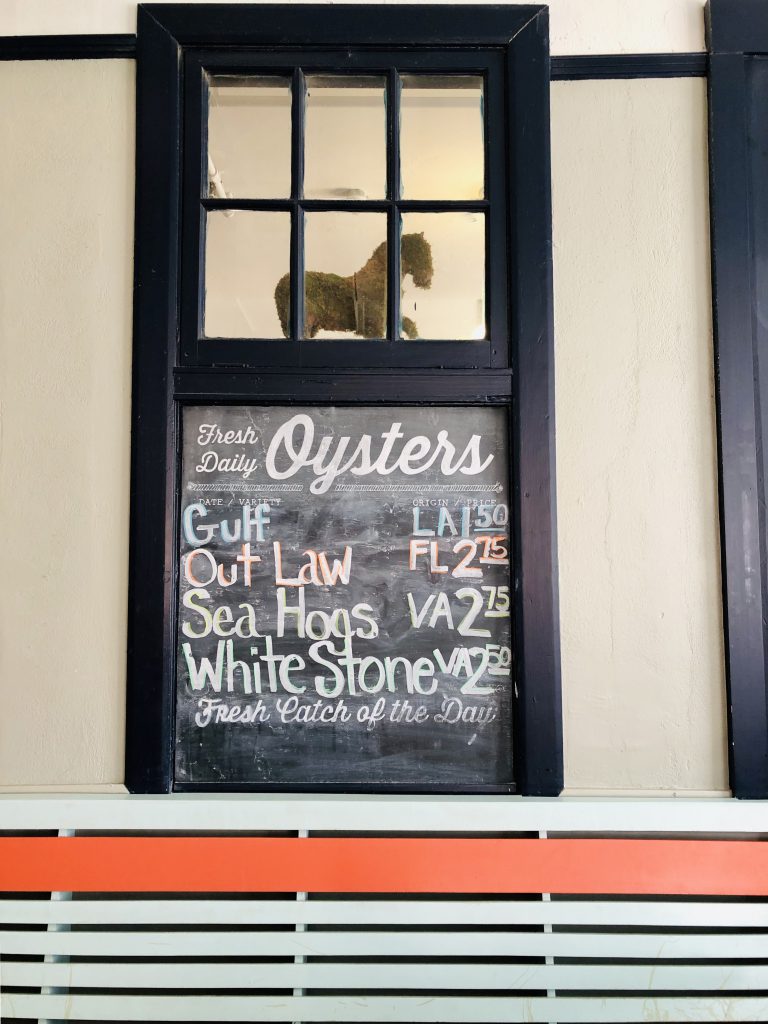 Fresh Daily Oysters
DATE / VARIETY ORIGIN / PRICE
Gulf LA 1 50
Out Law FL 2 75
Sea Hogs VA 2 75
White Stone VA 2 50
Fresh Catch of the Day